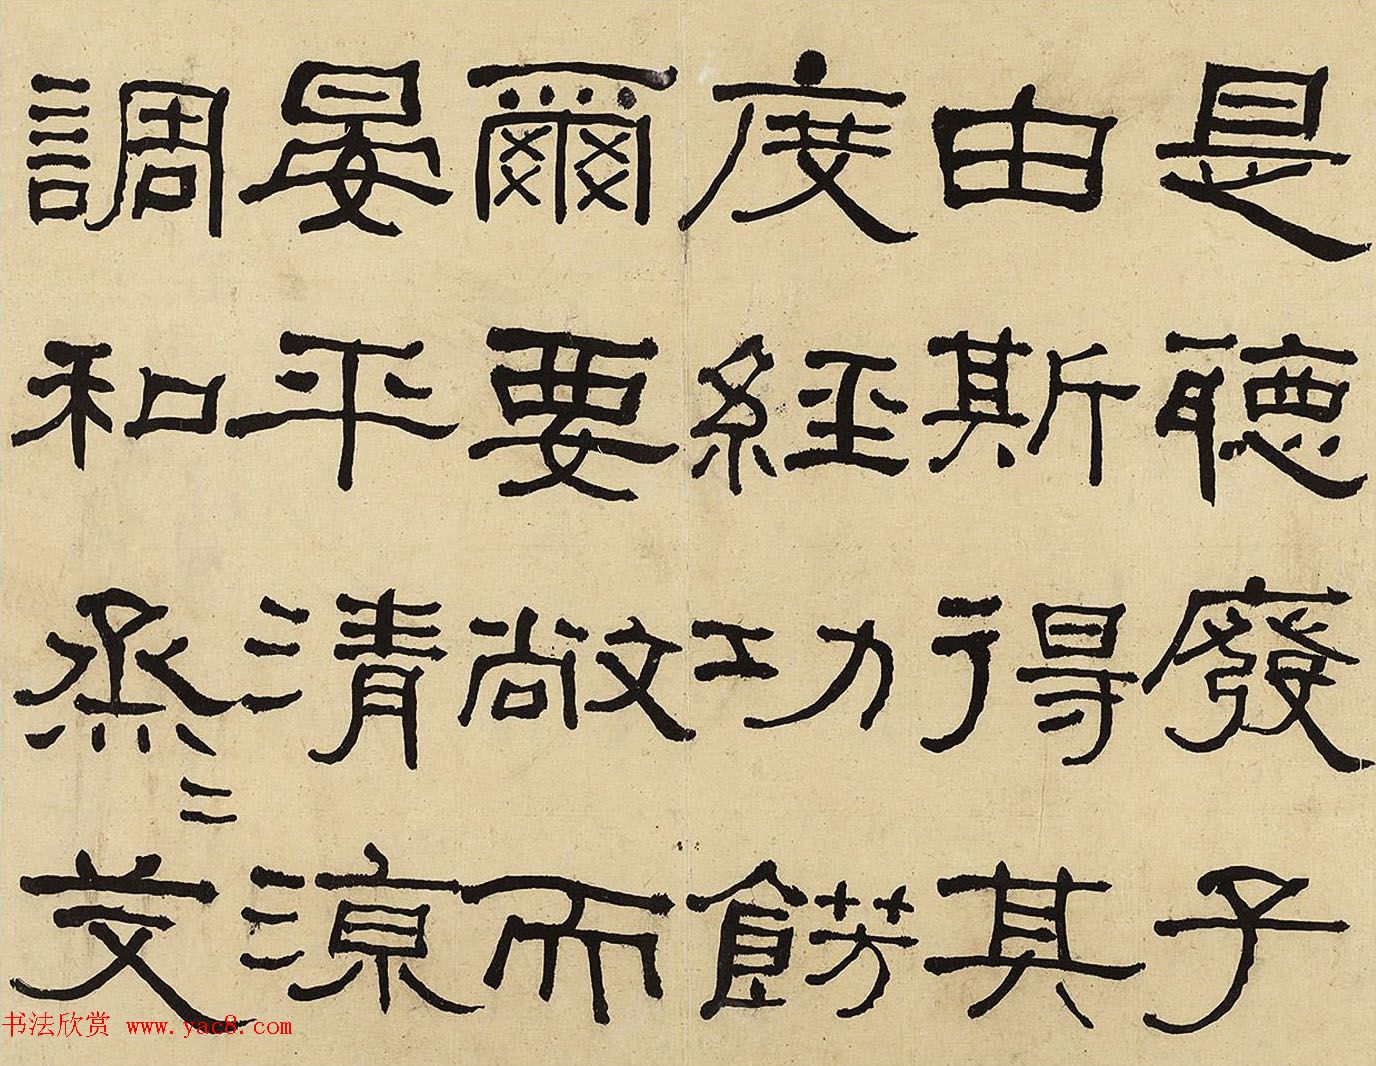 是聽廢子
由斯得其
度經功餝
爾要敞而
晏平清涼
調和烝〻艾
书法欣赏 www.yac8.com